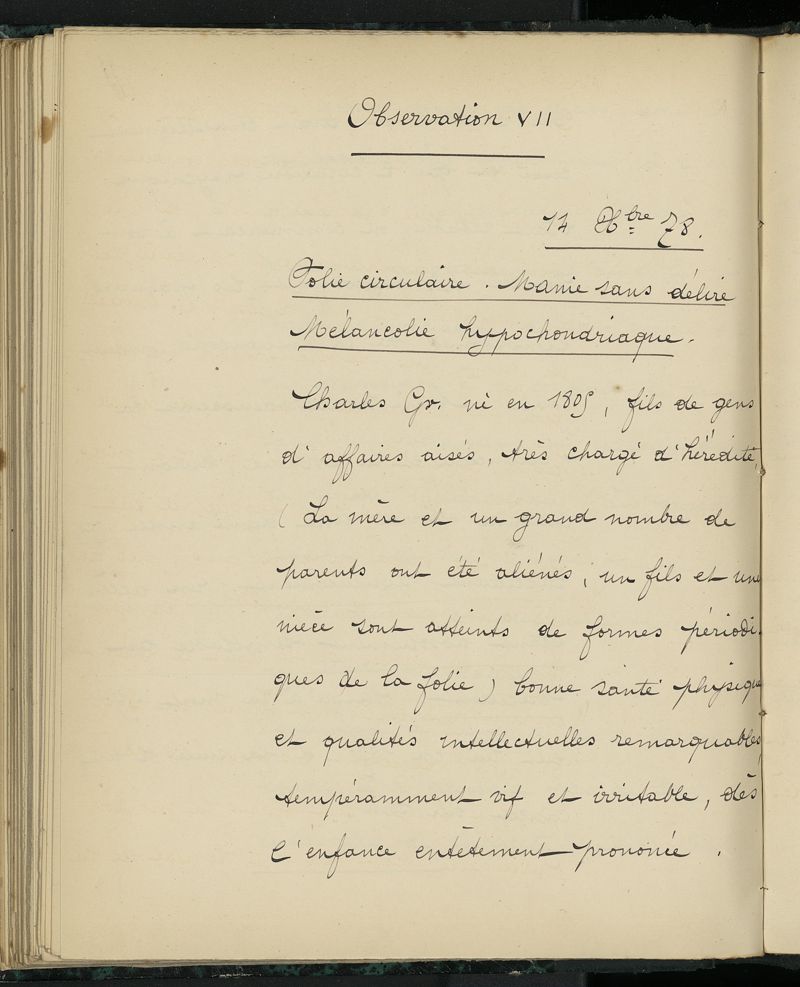 Observation VII
14 Xbre 78.
Folie circulaire. Manie sans délire
Mélancolie hypochondriaque.
Charles Gr. né en 1805, fils de gens
d'affaires aisés, très chargé d'hérédité,
(La mère et un grand nombre de
parents ont été aliénés, un fils et une
nièce sont atteints de formes périodi-
ques de la folie) bonne santé physique
et qualités intellectuelles remarquables,
tempéramment vif et irritable, dès
l'enfance entêtement prononcée.